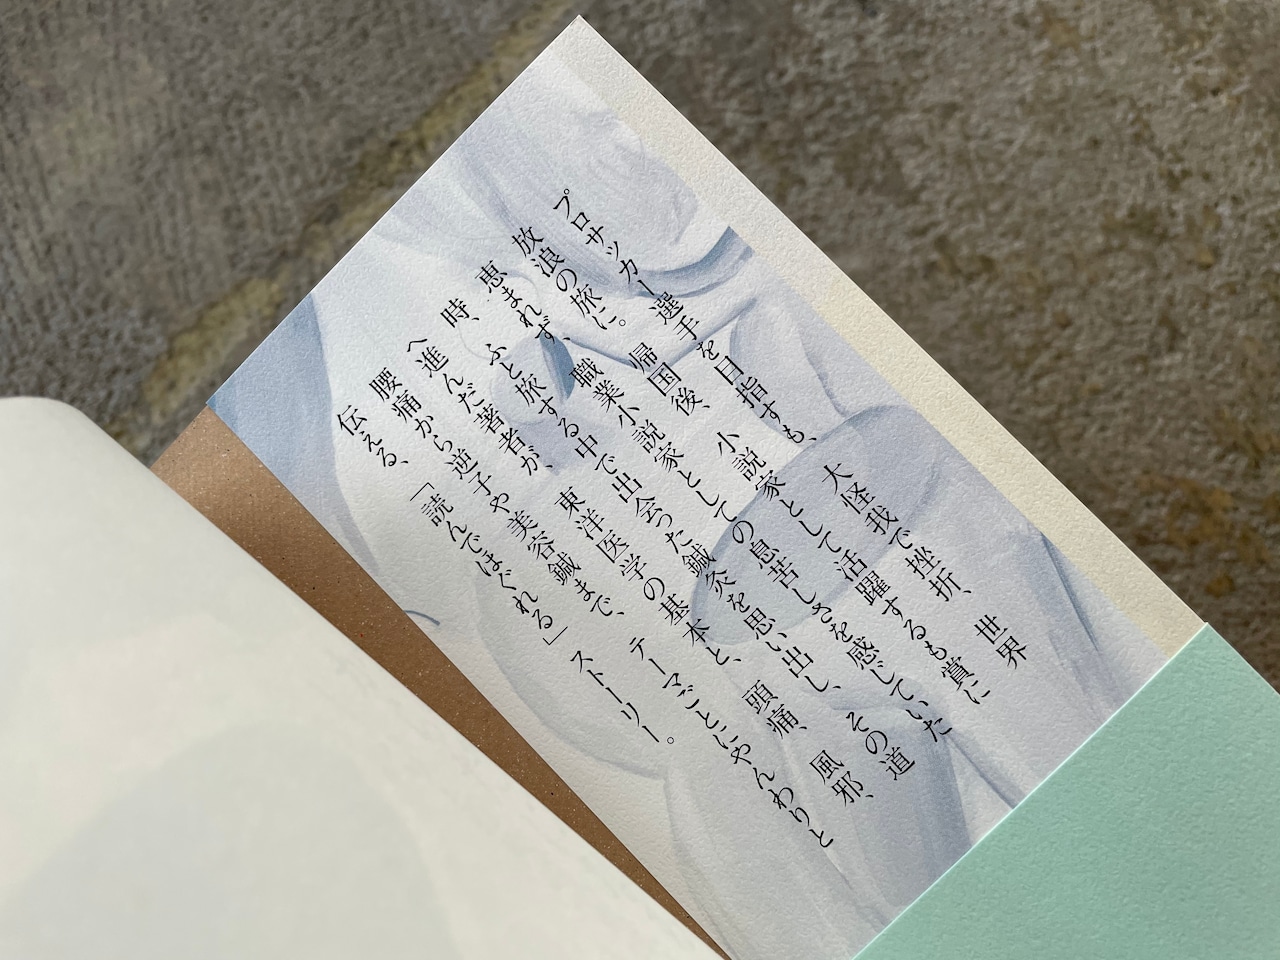 プロサッカー選手を目指すも、大怪我で挫折、世界
放浪の旅に。帰国後、小説家として活躍するも賞に
恵まれず、職業小説家としての息苦しさを感じていた
時、ふと旅する中で出会った鍼灸を思い出し、その道
へ進んだ著者が、東洋医学の基本と、頭痛、風邪、
腰痛から逆子や美容鍼まで、テーマごとにやんわりと
伝える、「読んでほぐれる」ストーリー。